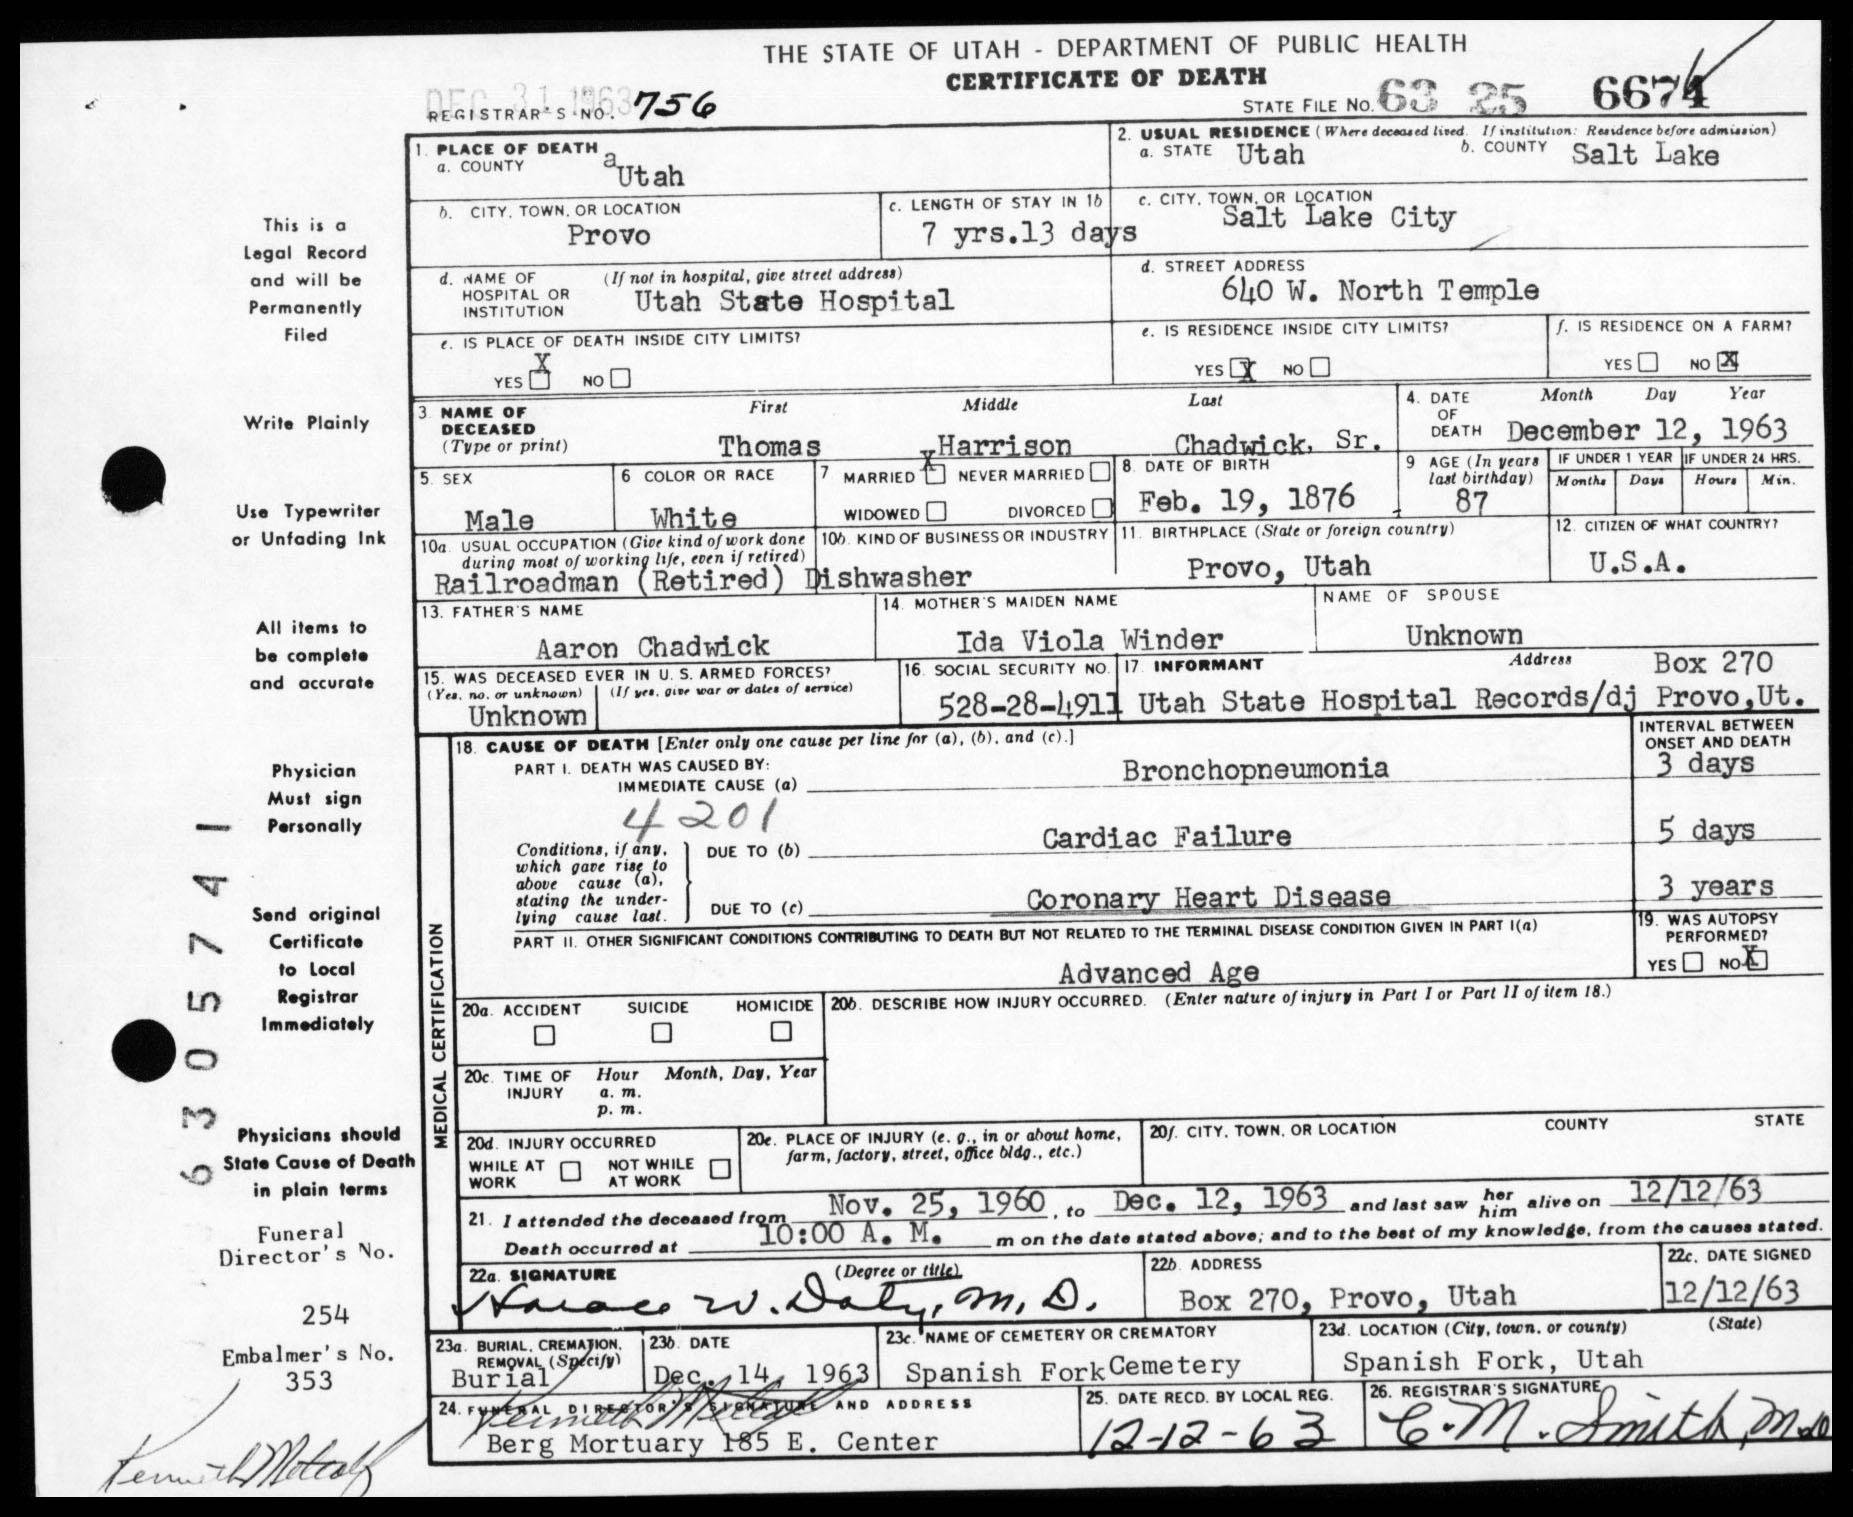 THE STATE OF UTAH - DEPARTMENT OF PUBLIC HEALTH
CERTIFICATE OF DEATH
DEC 31 1963
REGISTRAR'S NO. 756
STATE FILE NO. 63 25 6674
1. PLACE OF DEATH
a. COUNTY a Utah
2. USUAL RESIDENCE (Where deceased lived. If institution: Residence before admission)
a. STATE Utah b. COUNTY Salt Lake
b. CITY, TOWN, OR LOCATION
Provo
c. LENGTH OF STAY IN 1b
7 yrs.13 days
c. CITY, TOWN, OR LOCATION
Salt Lake City
d. NAME OF HOSPITAL OR INSTITUTION (If not in hospital, give street address)
Utah State Hospital
d. STREET ADDRESS
640 W. North Temple
e. IS PLACE OF DEATH INSIDE CITY LIMITS?
YES X NO
e. IS RESIDENCE INSIDE CITY LIMITS?
YES X NO
f. IS RESIDENCE ON A FARM?
YES NO X
3. NAME OF DECEASED (Type or print)
First Middle Last
Thomas Harrison Chadwick, Sr.
4. DATE OF DEATH Month Day Year
December 12, 1963
5. SEX
Male
6 COLOR OR RACE
White
7 MARRIED X NEVER MARRIED
WIDOWED DIVORCED
8. DATE OF BIRTH
Feb. 19, 1876
9 AGE (In years last birthday)
87
IF UNDER 1 YEAR IF UNDER 24 HRS.
Months Days Hours Min.
10a. USUAL OCCUPATION (Give kind of work done during most of working life, even if retired)
10b. KIND OF BUSINESS OR INDUSTRY
Railroadman (Retired) Dishwasher
11. BIRTHPLACE (State or foreign country)
Provo, Utah
12. CITIZEN OF WHAT COUNTRY?
U.S.A.
13. FATHER'S NAME
Aaron Chadwick
14. MOTHER'S MAIDEN NAME
Ida Viola Winder
NAME OF SPOUSE
Unknown
15. WAS DECEASED EVER IN U.S. ARMED FORCES?
(Yes, no, or unknown) (If yes, give war or dates of service)
Unknown
16. SOCIAL SECURITY NO.
528-28-4911
17. INFORMANT Address Box 270
Utah State Hospital Records/dj Provo,Ut.
MEDICAL CERTIFICATION
18. CAUSE OF DEATH [Enter only one cause per line for (a), (b), and (c).]
INTERVAL BETWEEN ONSET AND DEATH
PART I. DEATH WAS CAUSED BY:
IMMEDIATE CAUSE (a) Bronchopneumonia 3 days
4201
Conditions, if any, which gave rise to above cause (a), stating the underlying cause last.
DUE TO (b) Cardiac Failure 5 days
DUE TO (c) Coronary Heart Disease 3 years
PART II. OTHER SIGNIFICANT CONDITIONS CONTRIBUTING TO DEATH BUT NOT RELATED TO THE TERMINAL DISEASE CONDITION GIVEN IN PART I(a)
Advanced Age
19. WAS AUTOPSY PERFORMED?
YES NO X
20a. ACCIDENT SUICIDE HOMICIDE
20b. DESCRIBE HOW INJURY OCCURRED. (Enter nature of injury in Part I or Part II of item 18.)
20c. TIME OF INJURY Hour Month, Day, Year
a. m.
p. m.
20d. INJURY OCCURRED
WHILE AT WORK NOT WHILE AT WORK
20e. PLACE OF INJURY (e. g., in or about home, farm, factory, street, office bldg., etc.)
20f. CITY, TOWN, OR LOCATION COUNTY STATE
21. I attended the deceased from Nov. 25, 1960, to Dec. 12, 1963 and last saw her him alive on 12/12/63
Death occurred at 10:00 A. M. m on the date stated above; and to the best of my knowledge, from the causes stated.
22a. SIGNATURE (Degree or title)
Horace W. Daly, M.D.
22b. ADDRESS
Box 270, Provo, Utah
22c. DATE SIGNED
12/12/63
23a. BURIAL, CREMATION, REMOVAL (Specify)
Burial
23b. DATE
Dec. 14, 1963
23c. NAME OF CEMETERY OR CREMATORY
Spanish Fork Cemetery
23d. LOCATION (City, town, or county) (State)
Spanish Fork, Utah
24. FUNERAL DIRECTOR'S SIGNATURE AND ADDRESS
Kenneth Metcalf
Berg Mortuary 185 E. Center
25. DATE RECD. BY LOCAL REG.
12-12-63
26. REGISTRAR'S SIGNATURE
C. M. Smith, M.D
This is a
Legal Record
and will be
Permanently
Filed
Write Plainly
Use Typewriter
or Unfading Ink
All items to
be complete
and accurate
Physician
Must sign
Personally
Send original
Certificate
to Local
Registrar
Immediately
Physicians should
State Cause of Death
in plain terms
Funeral
Director's No.
254
Embalmer's No.
353
Kenneth Metcalf
6305741